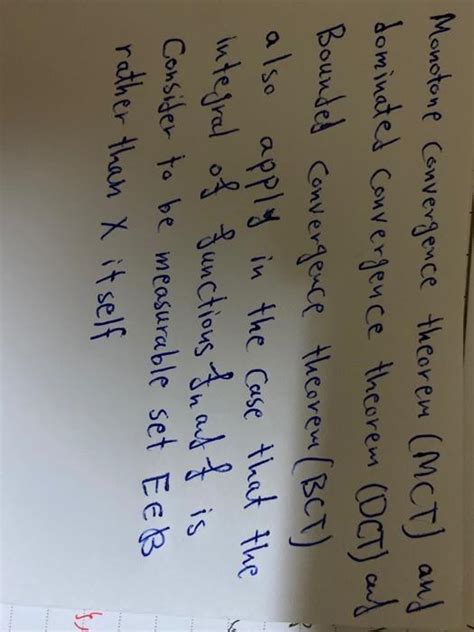 Monotone convergence theorem (MCT) and
dominated convergence theorem (DCT) and
Bounded convergence theorem (BCT)
also apply in the case that the
integral of functions fn and f is
Consider to be measurable set E∈B
rather than X itself